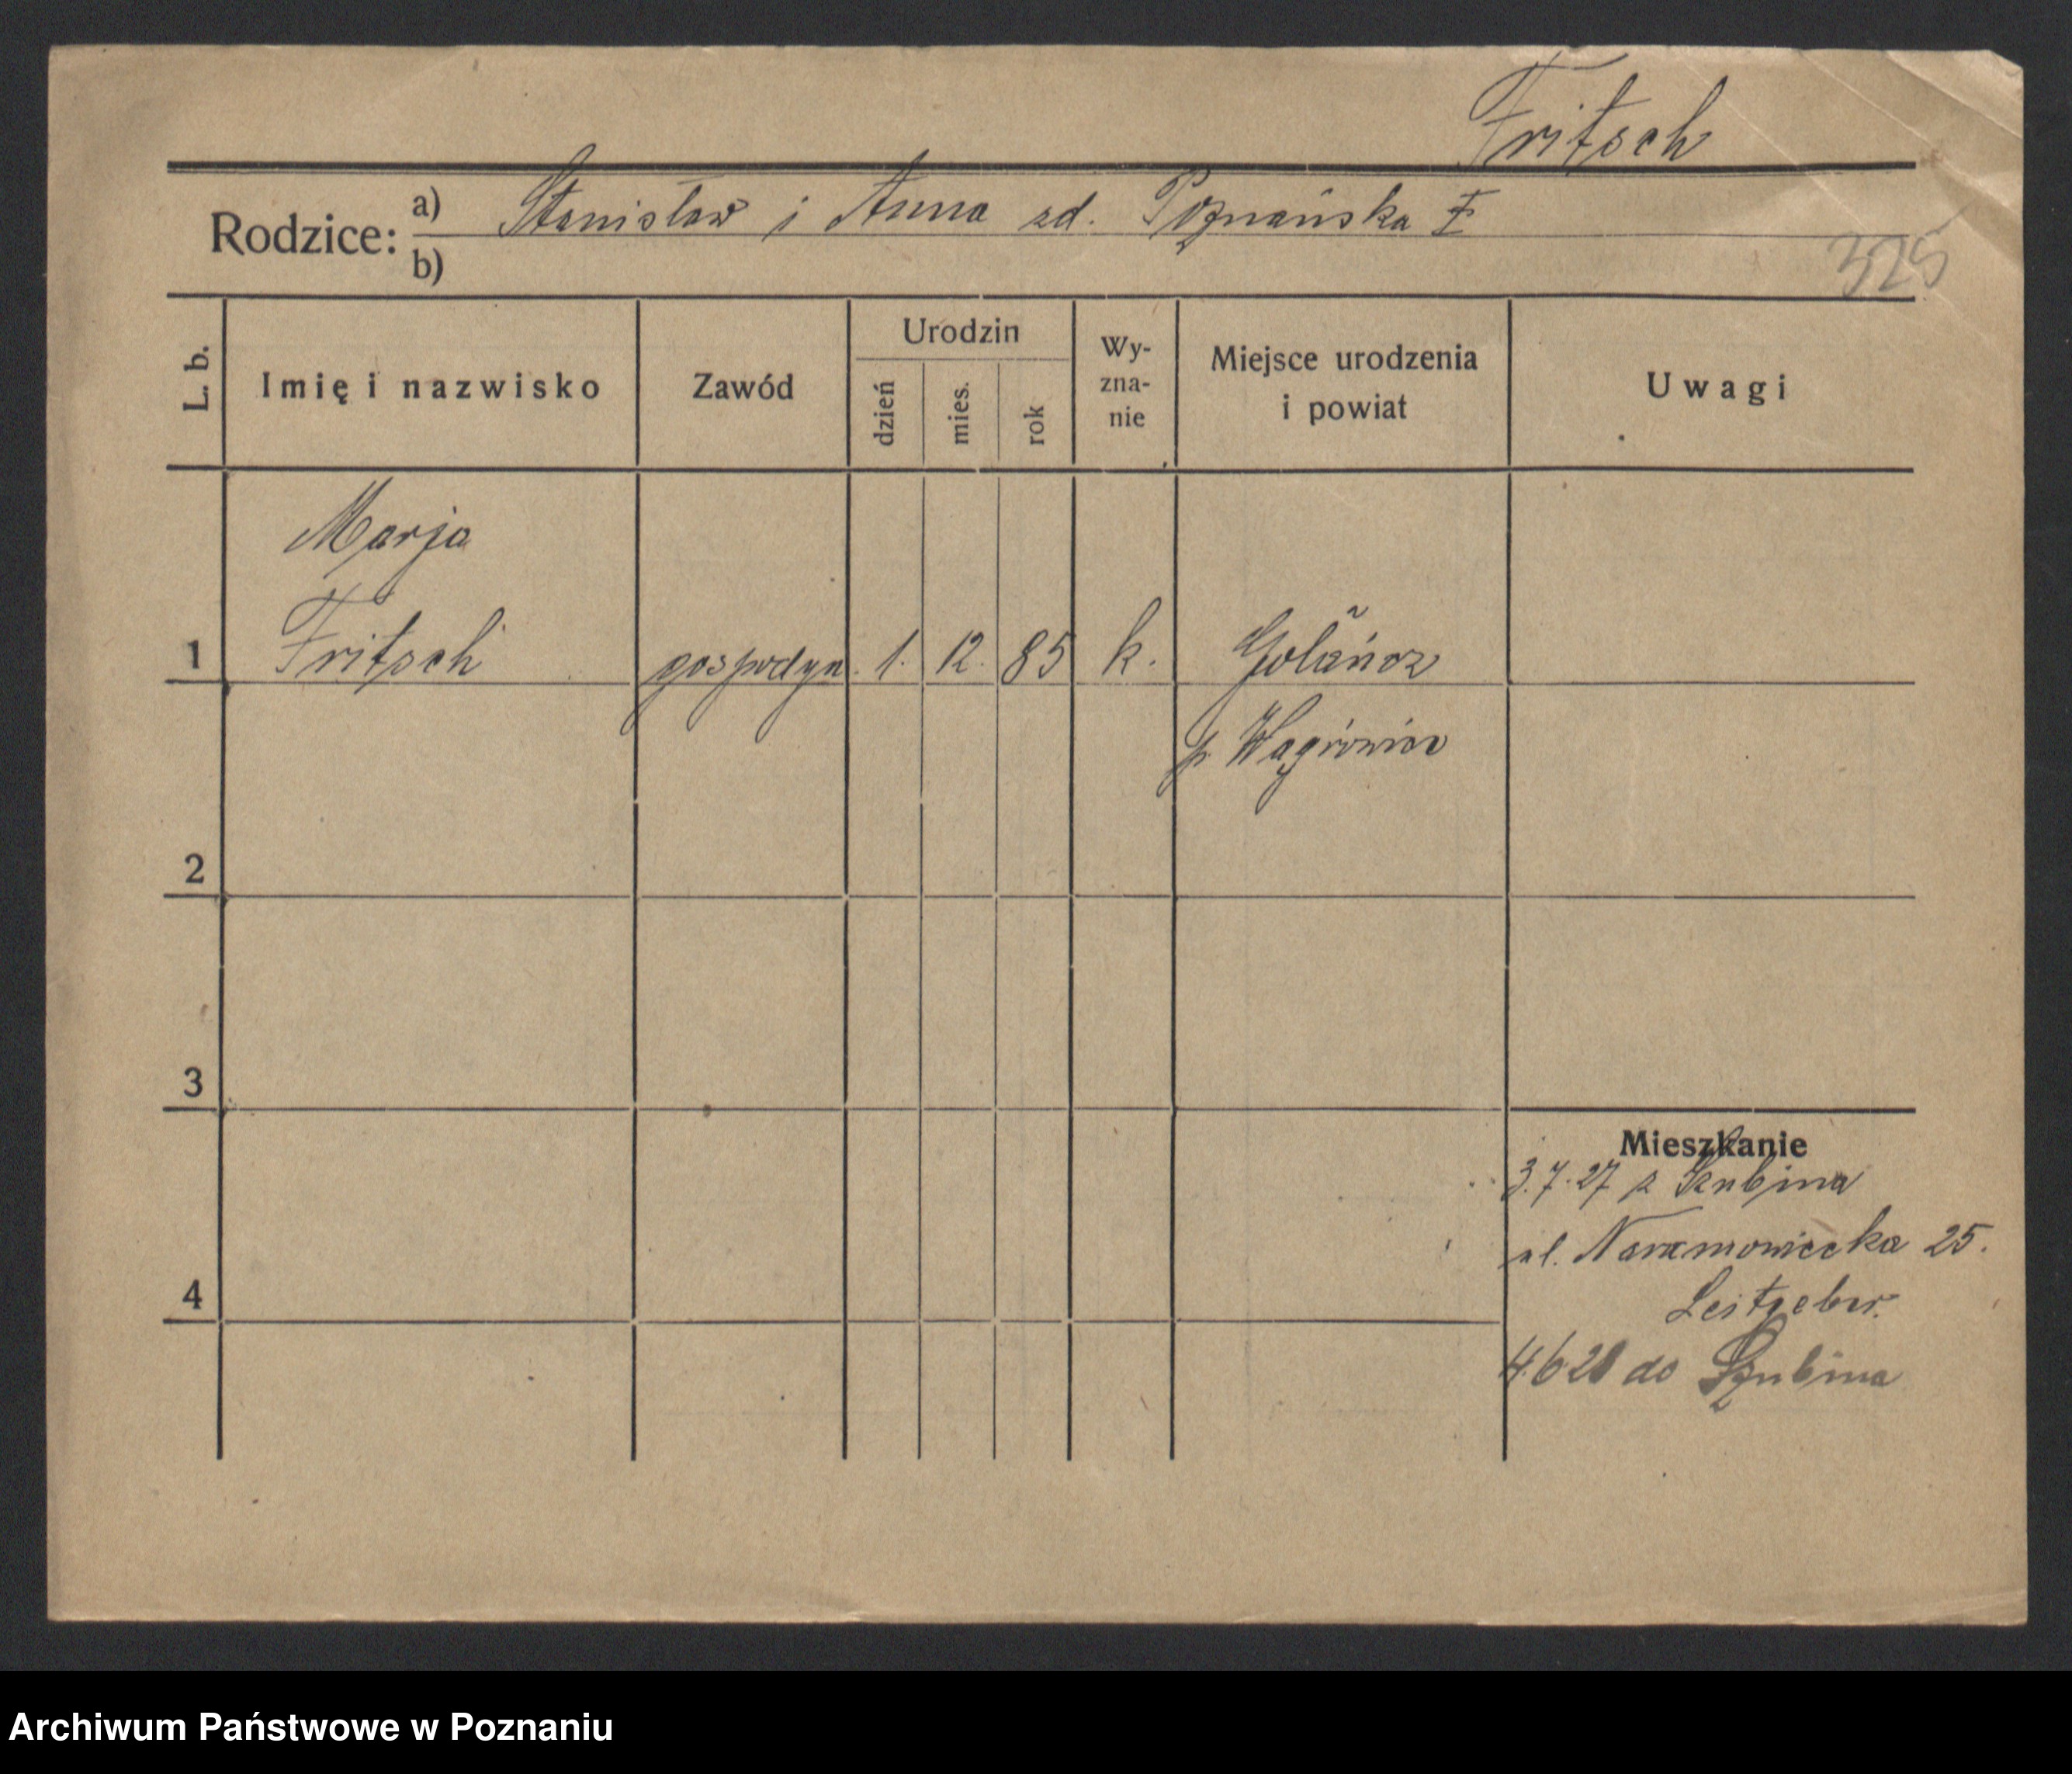 Fritsch
Rodzice: a) Stanisław i Anna zd. Poznańska
b)
325
L. b. Imię i nazwisko Zawód Urodzin dzień mies. rok Wy-zna-nie Miejsce urodzenia i powiat Uwagi
Marja
1 Fritsch gospodyn. 1. 12. 85 k. Gołańcz
p. Wągrowiec
2
3
Mieszkanie
3.7.27 z Szubina
ul. Naramowicka 25.
4 Leitgeber.
do Szubina
Archiwum Państwowe w Poznaniu